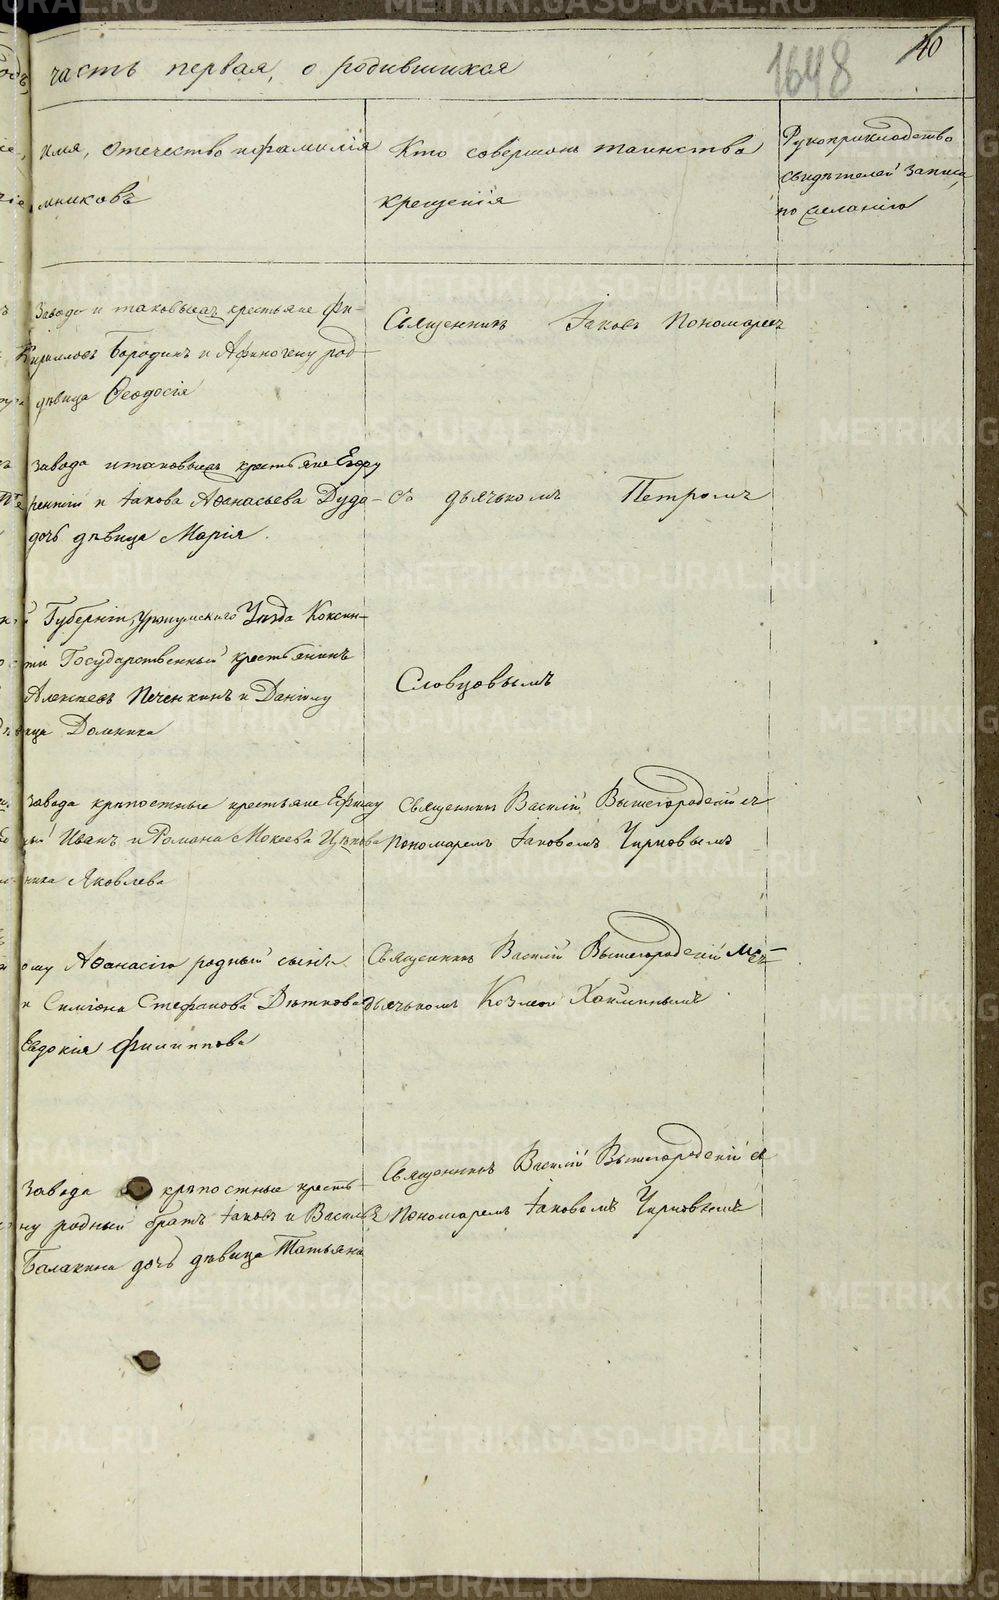 часть первая, о родившихся
1648
40
имя, отечество и фамилія
мниковъ
Кто совершалъ таинство
крещенія
Рукоприкладство
свидѣтелей записи
по желанію
завода и таковыеже крестьяне Фи-
Кирилловъ Бородинъ и Афиногену род
дѣвица Ѳеодосія
Священникъ Іаковъ Пономарев
завода и таковыеже крестьяне Егору
и Іакова Аѳанасьева Дудо-
дочь дѣвица Марія.
съ дьячькомъ Петромъ
Губерніи, Уржумскаго Уѣзда Коксин-
тіи Государственный крестьянинъ
Алексѣевъ Печенкинъ и Даніилу
Домника
Словцовымъ
завода крѣпостные крестьяне Ефиму
Иванъ и Романа Мокеева
Яковлева
Священникъ Василій Вышегородскій съ
пономаремъ Іаковомъ Чирковымъ
ому Аѳанасію родный сынъ
и Симіона Стефанова
Евдокія Филиппова
Священникъ Василій Вышегородскій
дьячькомъ Козмою
завода крѣпостные кресть-
ну родный братъ Іаковъ и Василья
Балакина дочь дѣвица Татьяна
Священникъ Василій Вышегородскій съ
пономаремъ Іаковомъ Чирковымъ
METRIKI.GASO-URAL.RU